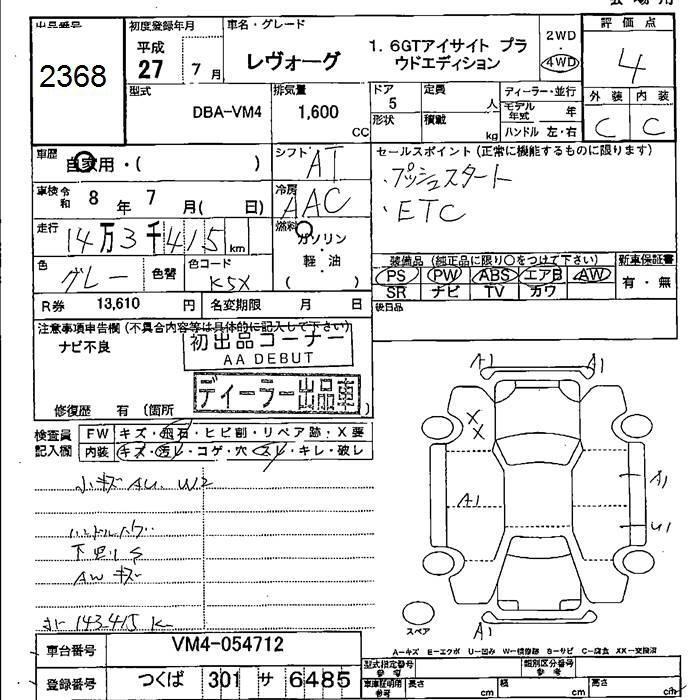 出品番号
2368
初度登録年月
平成
27 7 月
車名・グレード
レヴォーグ
1.6GTアイサイト プラ
ウドエディション
2WD
・
4WD
評価点
4
外装 内装
C C
型式
DBA-VM4
排気量
1,600
CC
ドア
5
形状
定員
人
積載
kg
ディーラー・並行
モデル
年式 年
ハンドル 左・右
車歴
自家用・( )
シフト
AT
車検 令和 8 年 7 月( 日)
冷房
AAC
走行
14万3千415 km
燃料
ガソリン
・
軽・油
( )
色
グレー
色替
色コード
K5X
R券 13,610 円
名変期限 月 日
セールスポイント(正常に機能するものに限ります)
・プッシュスタート
・ETC
装備品(純正品に限り○をつけて下さい)
新車保証書
PS PW ABS エアB AW
SR ナビ TV カワ
有・無
後日品
注意事項申告欄(不具合内容等は具体的に記入して下さい)
ナビ不良
初出品コーナー
AA DEBUT
ディーラー出品車
修復歴 有(箇所 )
検査員
記入欄
FW キズ・飛石・ヒビ割・リペア跡・X要
内装 キズ・汚レ・コゲ・穴・スレ・キレ・破レ
小キズ AU. U2
ハンドルハゲ
下回りS
AWキズ
143415K
A1
A1
X
X
A1
A1
U1
A1
スペア
A-キズ E-エクボ U-凹み W-補修跡 S-サビ C-腐食 XX-交換済
車台番号 VM4-054712
登録番号 つくば 301 サ 6485
型式指定番号
参考
類別区分番号
参考
車庫証明用
参考
長さ cm
幅 cm
高さ cm